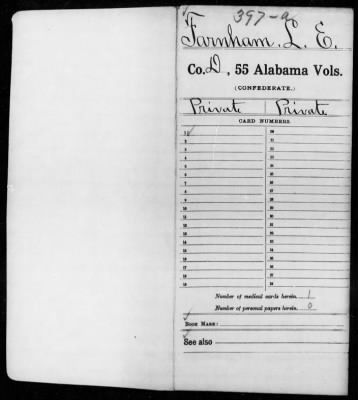 397-a
Farnham, L. E.
Co. D, 55 Alabama Vols.
(CONFEDERATE.)
Private Private
CARD NUMBERS.
1 20
2 21
3 22
4 23
5 24
6 25
7 26
8 27
9 28
10 29
11 30
12 31
13 32
14 33
15 34
16 35
17 36
18 37
19 38
Number of medical cards herein 1
Number of personal papers herein 0
BOOK MARK:
See also